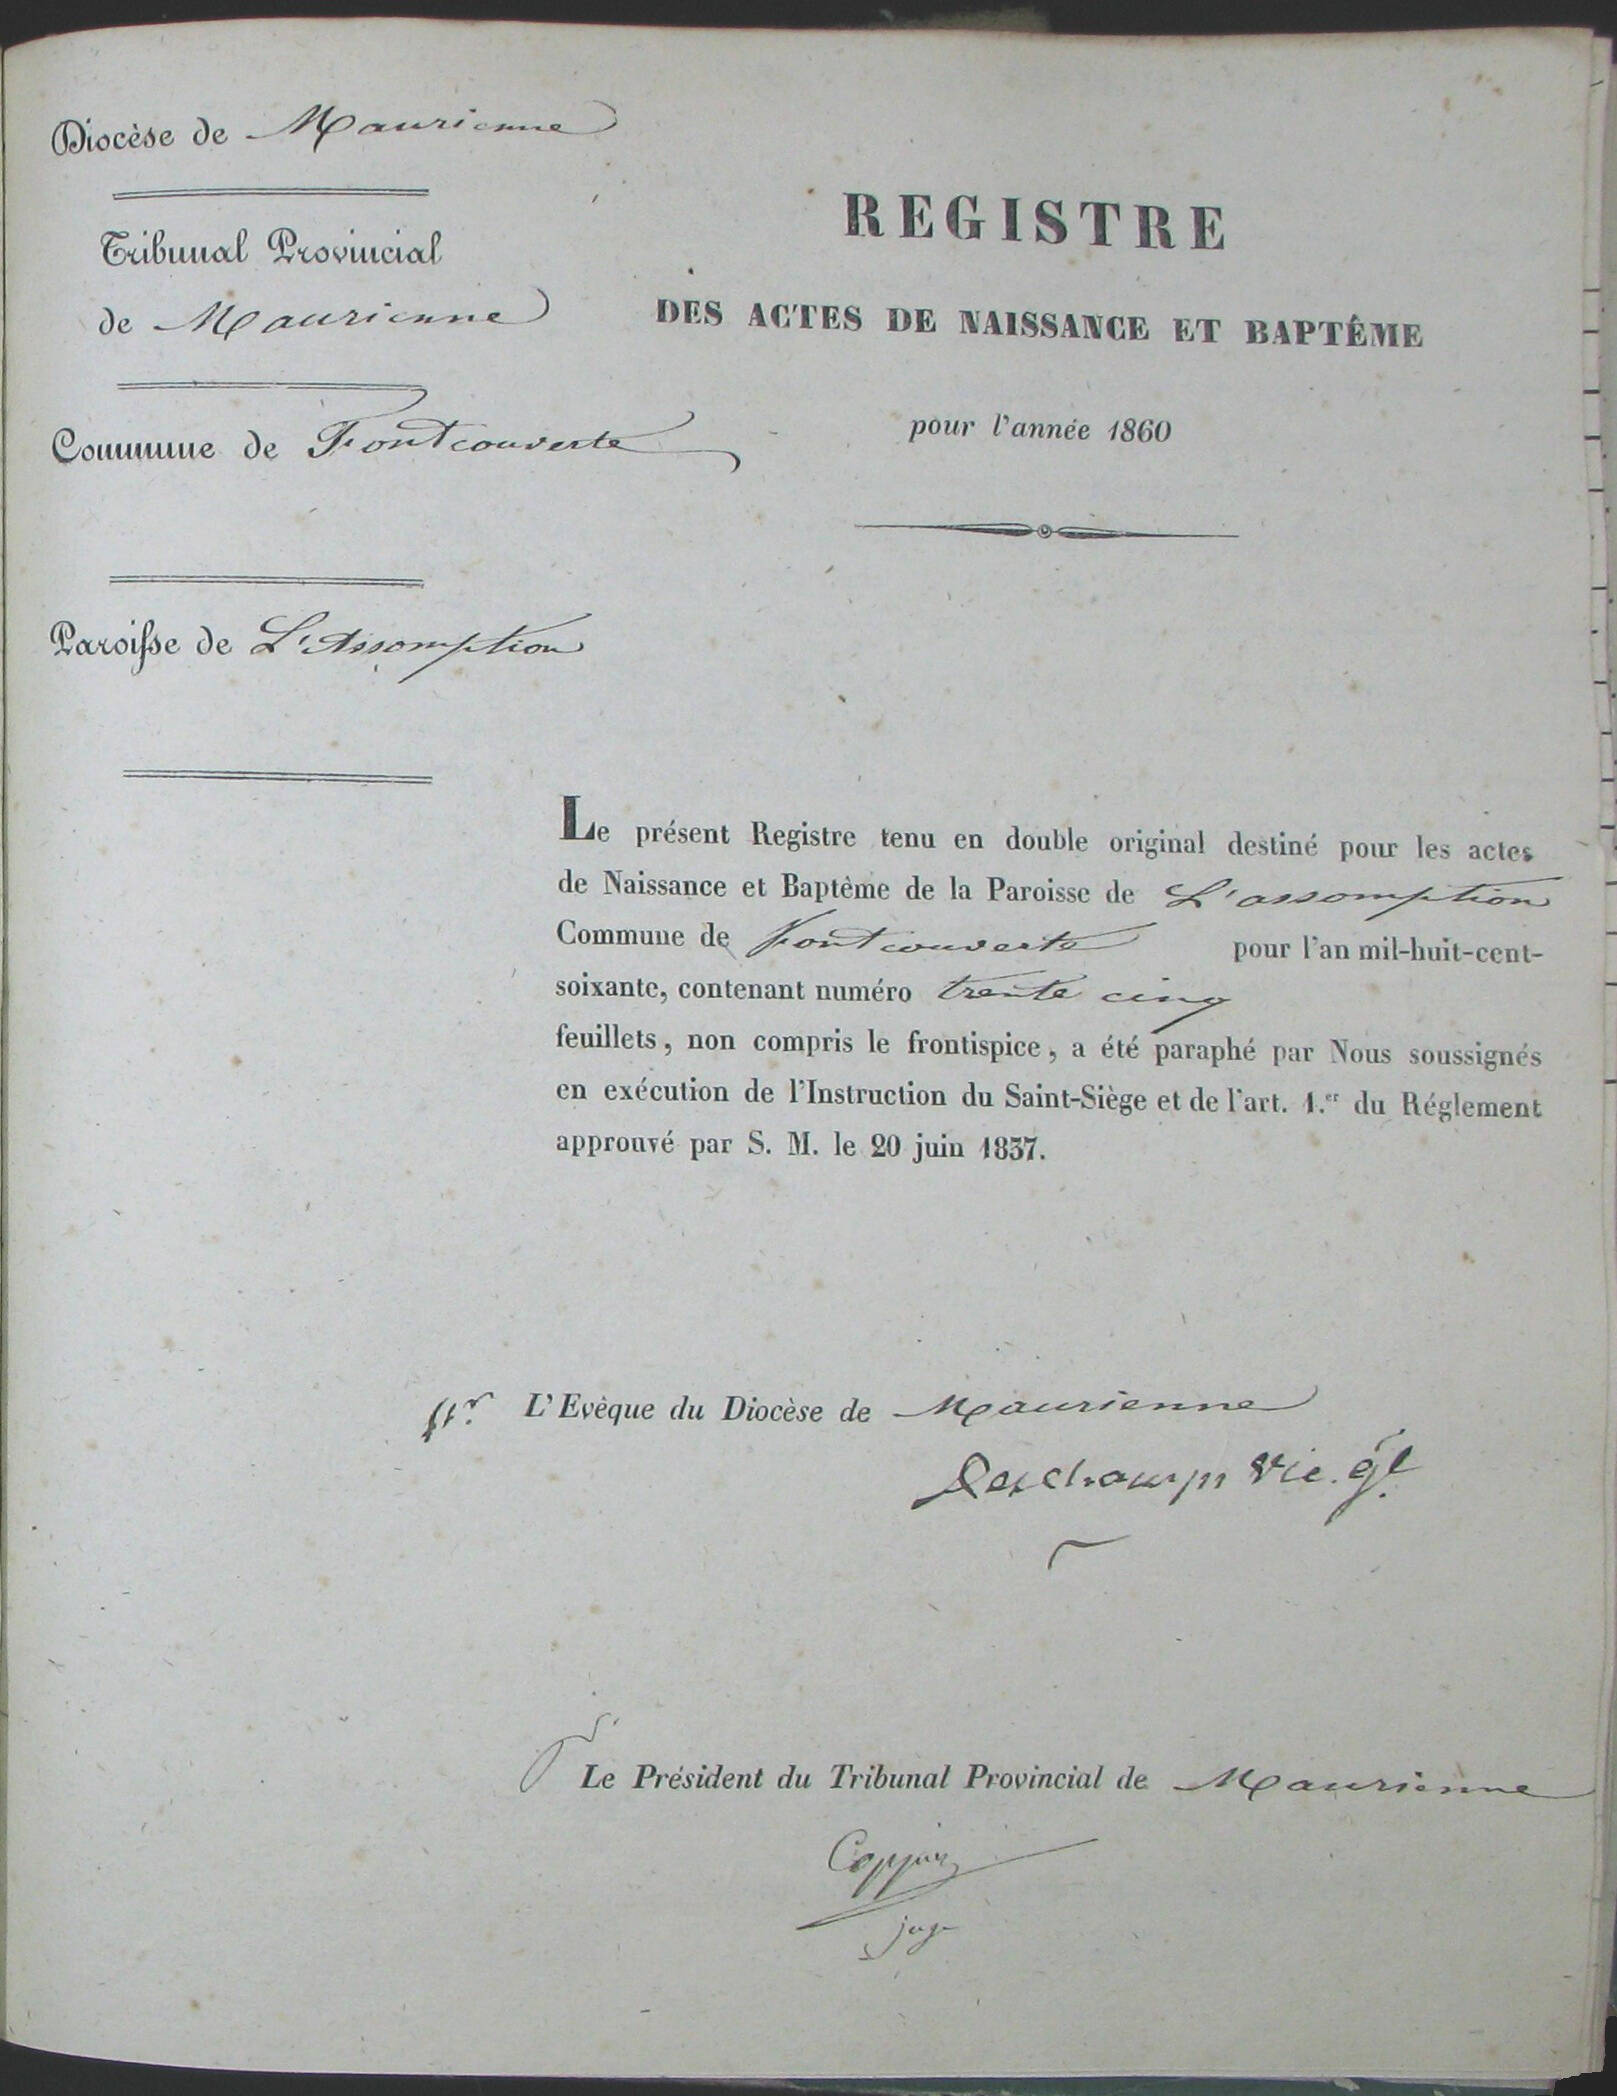 Diocèse de Maurienne
Tribunal Provincial
de Maurienne
Commune de Fontcouverte
Paroisse de L'Assomption
REGISTRE
DES ACTES DE NAISSANCE ET BAPTÊME
pour l'année 1860
Le présent Registre tenu en double original destiné pour les actes
de Naissance et Baptême de la Paroisse de L'assomption
Commune de Fontcouverte pour l'an mil-huit-cent-
soixante, contenant numéro trente cinq
feuillets, non compris le frontispice, a été paraphé par Nous soussignés
en exécution de l'Instruction du Saint-Siège et de l'art. 1.er du Réglement
approuvé par S. M. le 20 juin 1837.
pr. L'Evèque du Diocèse de Maurienne
Deschamps vic. gl.
Le Président du Tribunal Provincial de Maurienne
juge